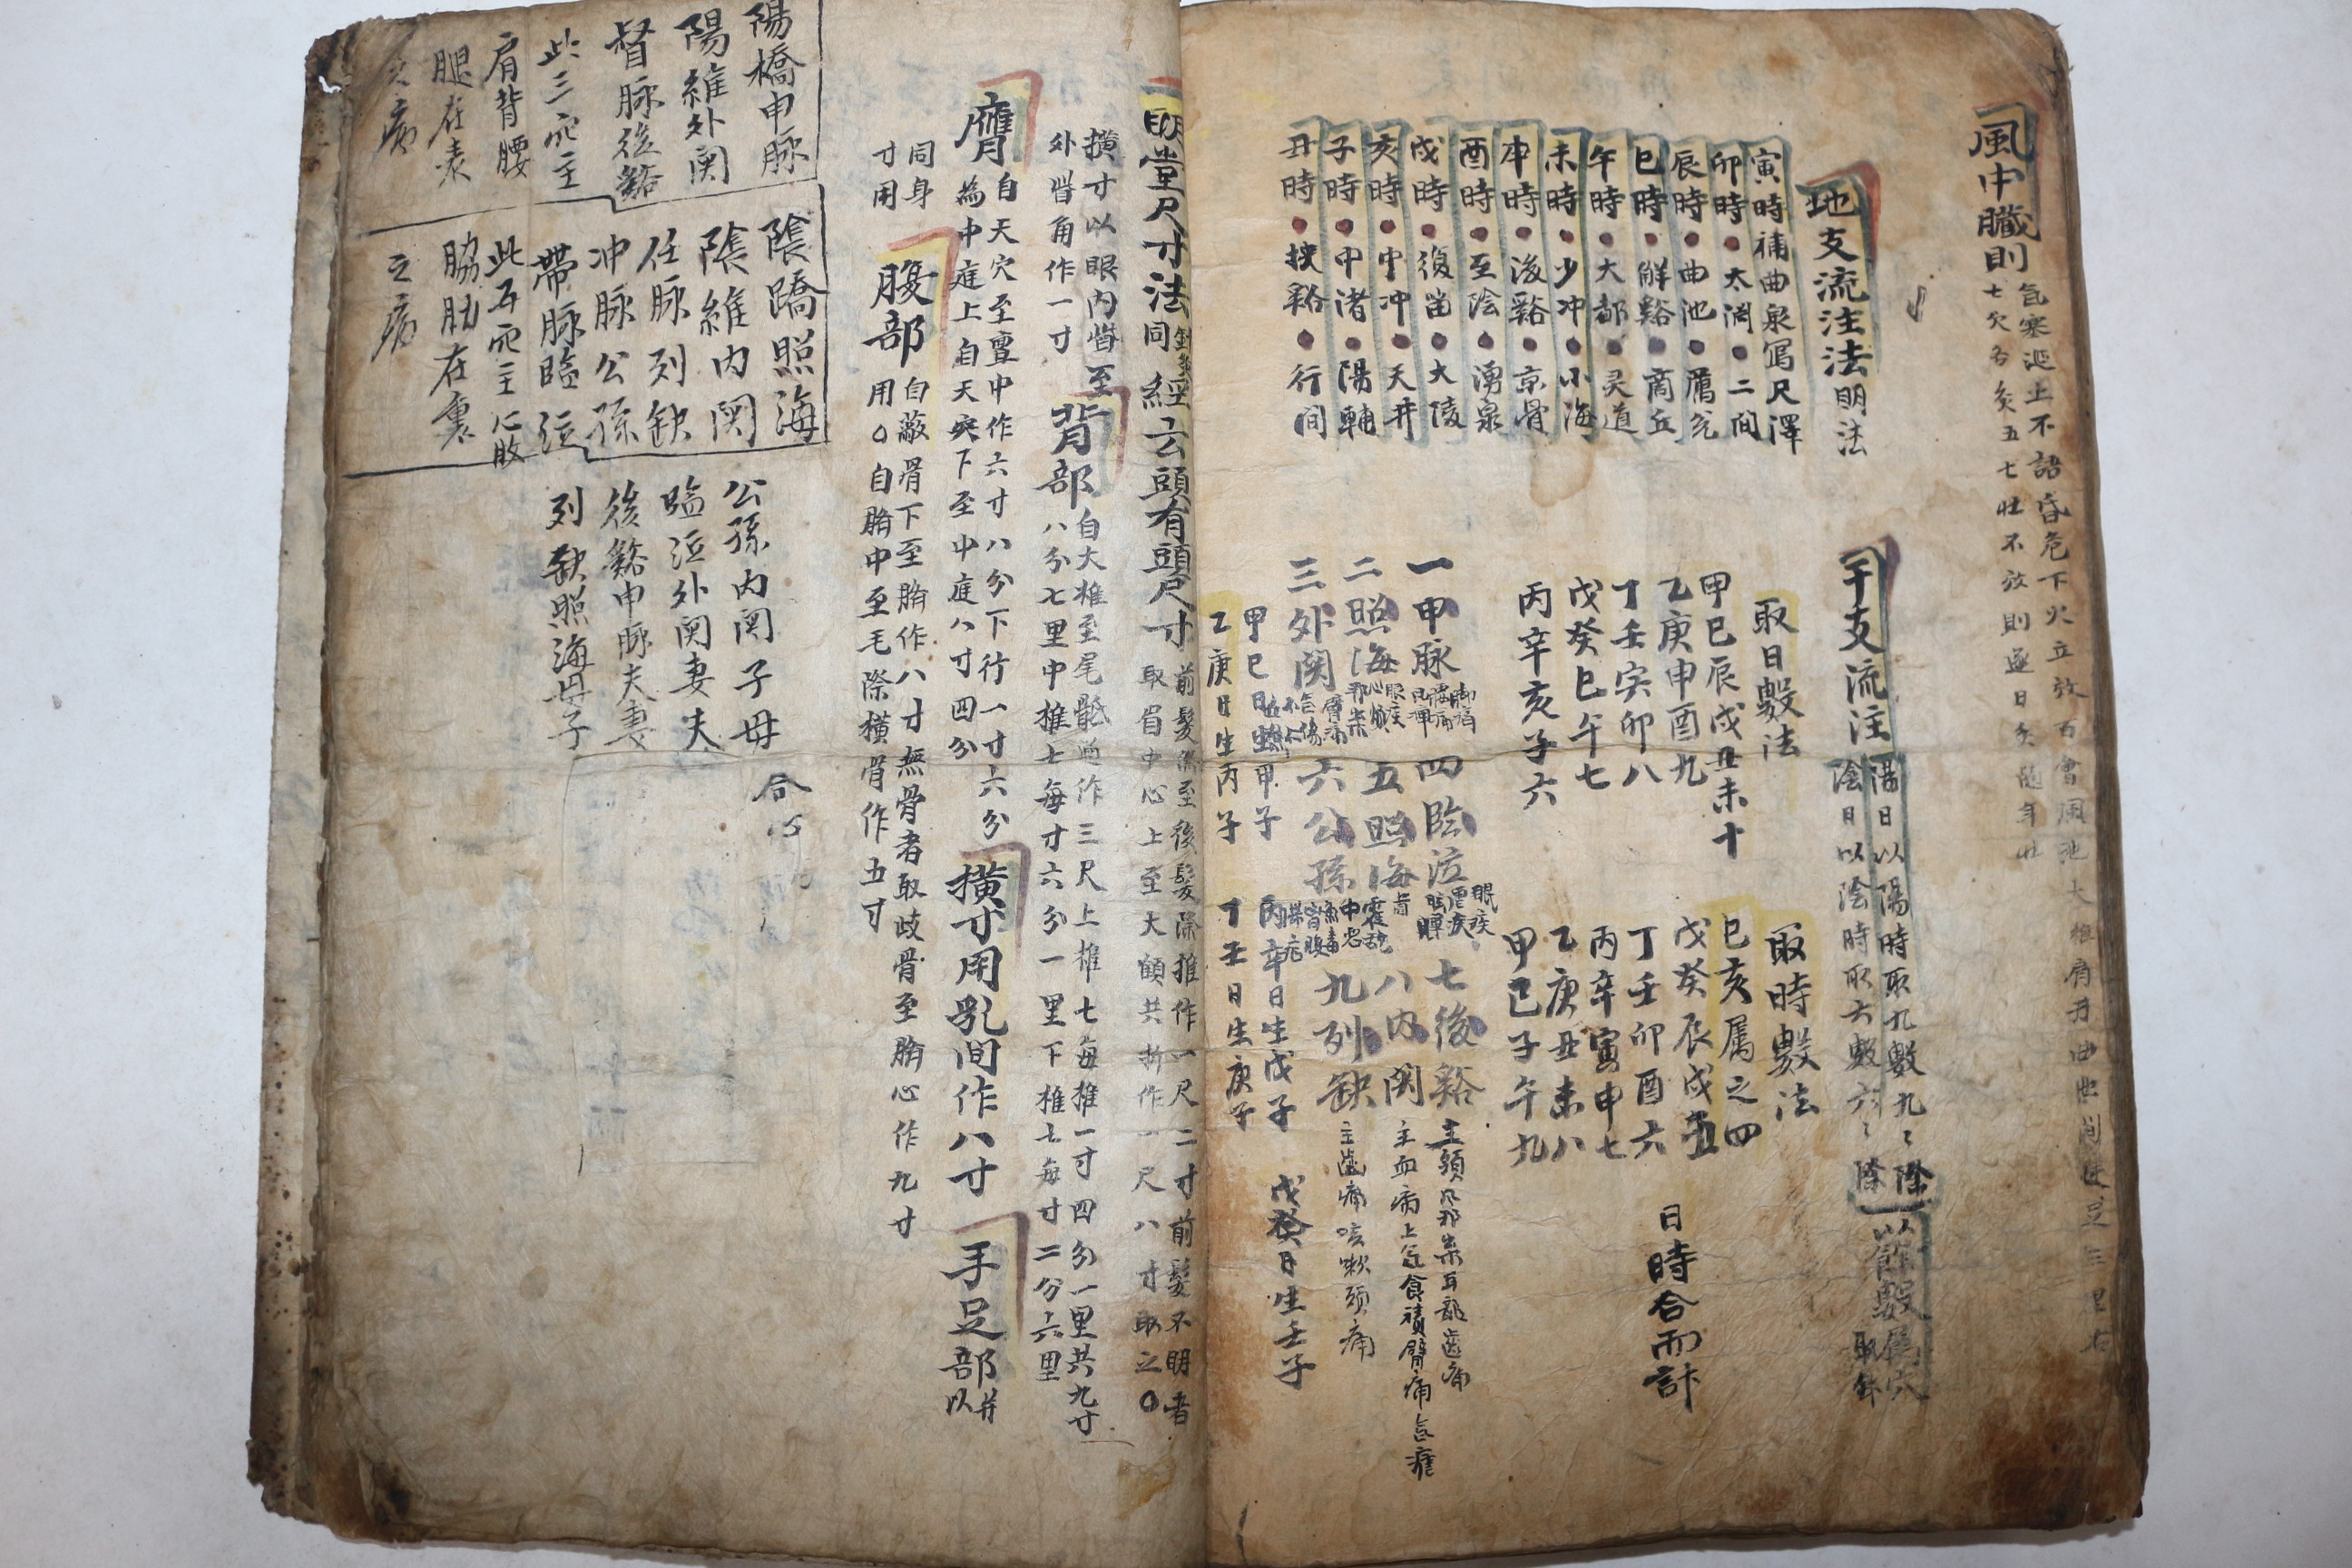 風中臟則
気塞涎上不語昏危下火立效百會風池大椎肩井曲池間使足三里右
七穴各灸五七壯不效則逐日灸隨年壯
地支流注法明法
寅時補曲泉寫尺澤
卯時●太渊●二間
辰時●曲池●厲兌
巳時●解谿●商丘
午時●大都●灵道
未時●少冲●小海
申時●後谿●京骨
酉時●至陰●湧泉
戌時●復畄●大陵
亥時●中冲●天井
子時●中渚●陽輔
丑時●挾谿●行間
干支流注
陽日以陽時取九數九〻除
陰日以陰時取六數六〻除
以餘數属穴
取針
取日數法
甲巳辰戌丑未十
乙庚申酉九
丁壬寅卯八
戊癸巳午七
丙辛亥子六
取時數法
巳亥属之四
戊癸辰戌五
丁壬卯酉六
丙辛寅申七
乙庚丑未八
甲巳子午九
日時合而計
一申脉
四臨泣
七後谿
主頭風邪祟耳聾齒痛
二照海
五照海
八内関
主血病上気食積臂痛
三外関
六公孫
九列缺
主齒痛咳嗽頭痛
甲巳日生甲子
丙辛日生戊子
戊癸日生壬子
乙庚日生丙子
丁壬日生庚子
明堂尺寸法同針灸經云頭有頭尺寸
前髮際至後髮際推作一尺二寸前髮不明者
取眉中心上至大顀共折作一尺八寸取之〇
橫寸以眼内眥至
外眥角作一寸
背部
自大椎至尾骶通作三尺上椎七每椎一寸四分一里共九寸
八分七里中椎七每寸六分一里下椎七每寸二分六里
膺
自天穴至亶中作六寸八分下行一寸六分
為中庭上自天突下至中庭八寸四分
橫寸用乳间作八寸
手足部
并
以
同身
寸用
腹部
自蔽骨下至臍作八寸無骨者取歧骨至臍心作九寸
用〇自臍中至毛際橫骨作五寸
陽橋申脉
陽維外関
督脉後谿
此三穴主
肩背腰
腿在表
之病
陰蹻照海
陰維内関
任脉列缺
冲脉公孫
帶脉臨泣
此五穴主心腹
脇肋在裏
之病
公孫内関子母
臨泣外関妻夫
後谿申脉夫妻
列缺照海母子
合心